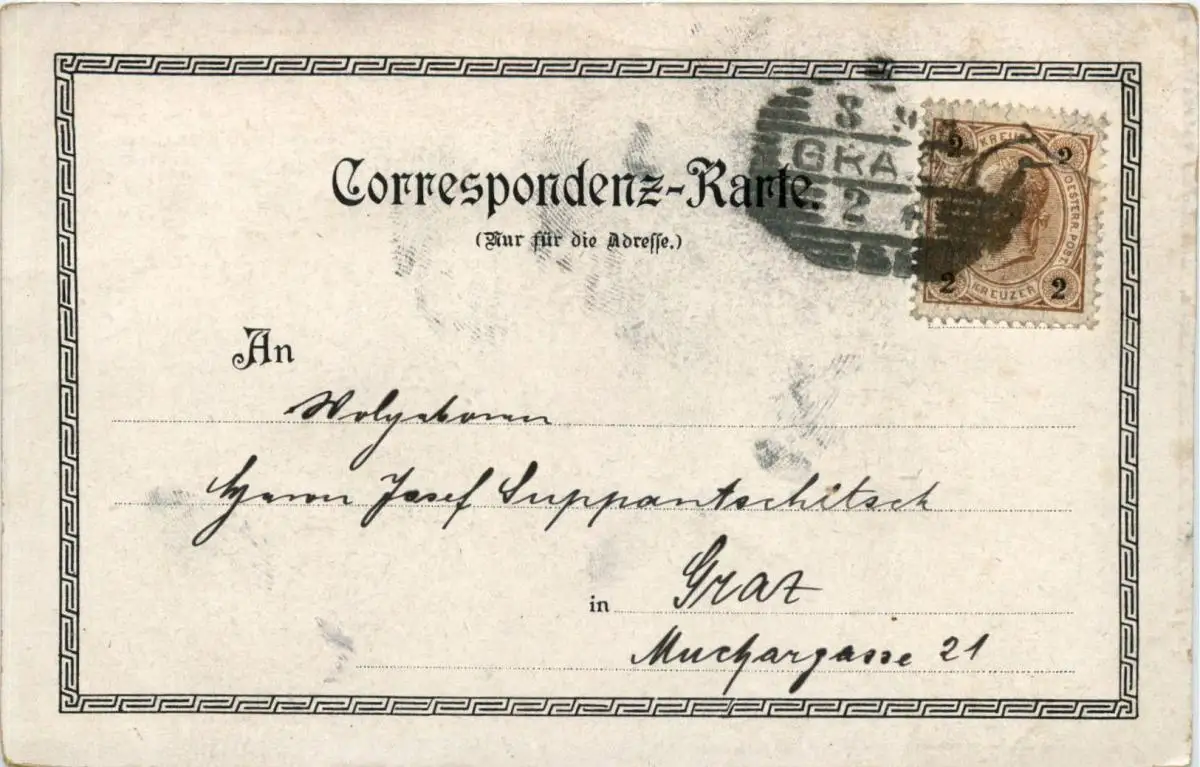 Correspondenz-Karte.
(Nur für die Adresse.)
3 9
GRA
2
2 KREUZER 2
OESTERR. POST
2 KREUZER 2
An
Wolgeboren
Herrn Josef Suppantschitsch
in Graz
Muchargasse 21